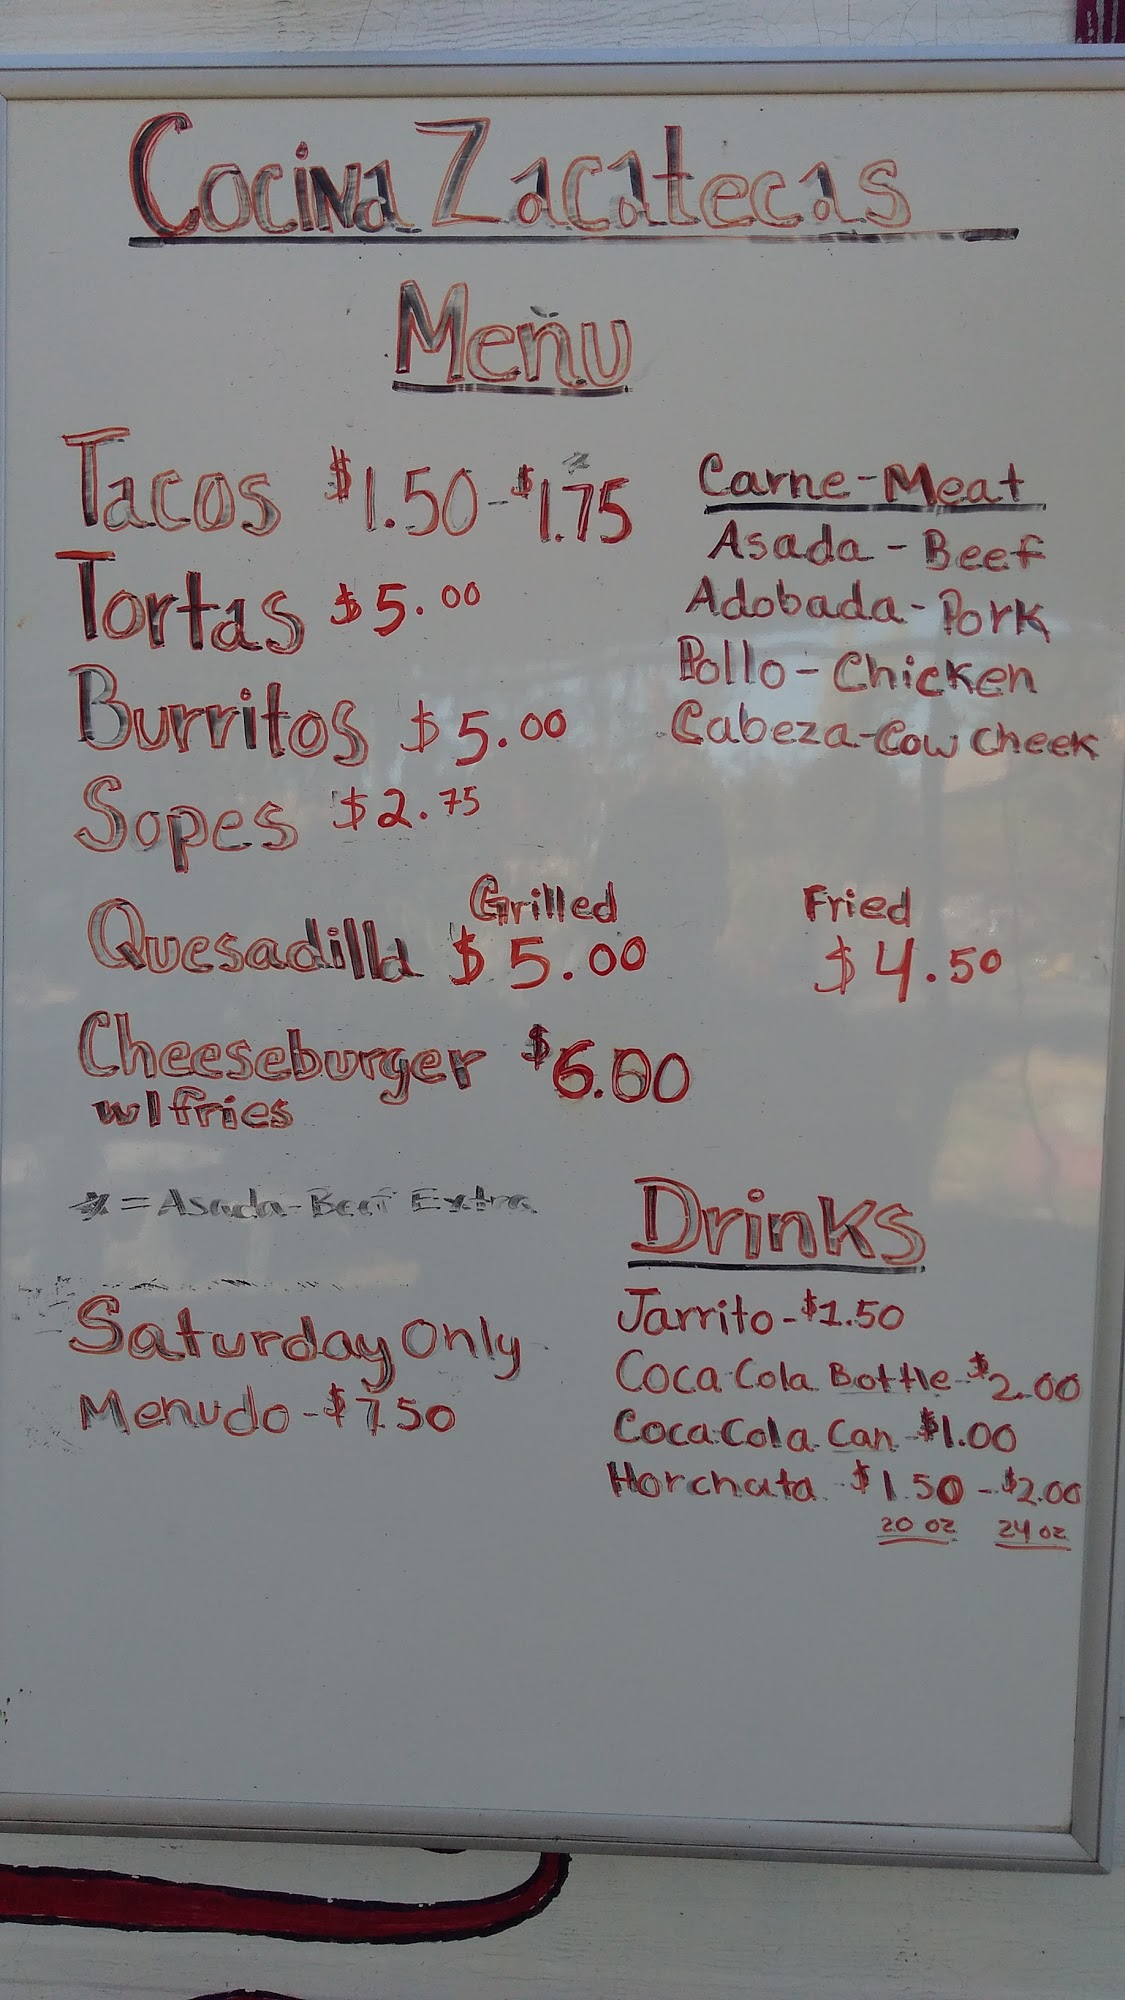 Cocina Zacatecas
Meñu
Tacos $1.50-$1.75*
Tortas $5.00
Burritos $5.00
Sopes $2.75
Carne-Meat
Asada-Beef
Adobada-Pork
Pollo-Chicken
Cabeza-Cow Cheek
Grilled Fried
Quesadilla $5.00 $4.50
Cheeseburger $6.00
w/fries
*=Asada-Beef Extra
Saturday Only
Menudo-$7.50
Drinks
Jarrito-$1.50
Coca-Cola Bottle-$2.00
Coca-Cola Can-$1.00
Horchata-$1.50-$2.00
20 oz 24 oz